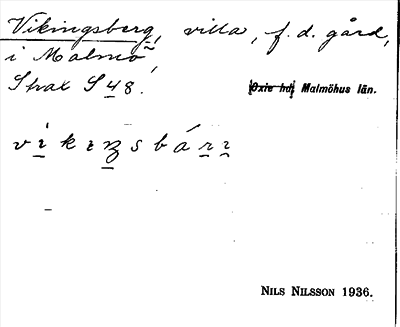 Vikingsberg, villa, f. d. gård,
i Malmö
S 48. Oxie hd, Malmöhus län.
NILS NILSSON 1936.